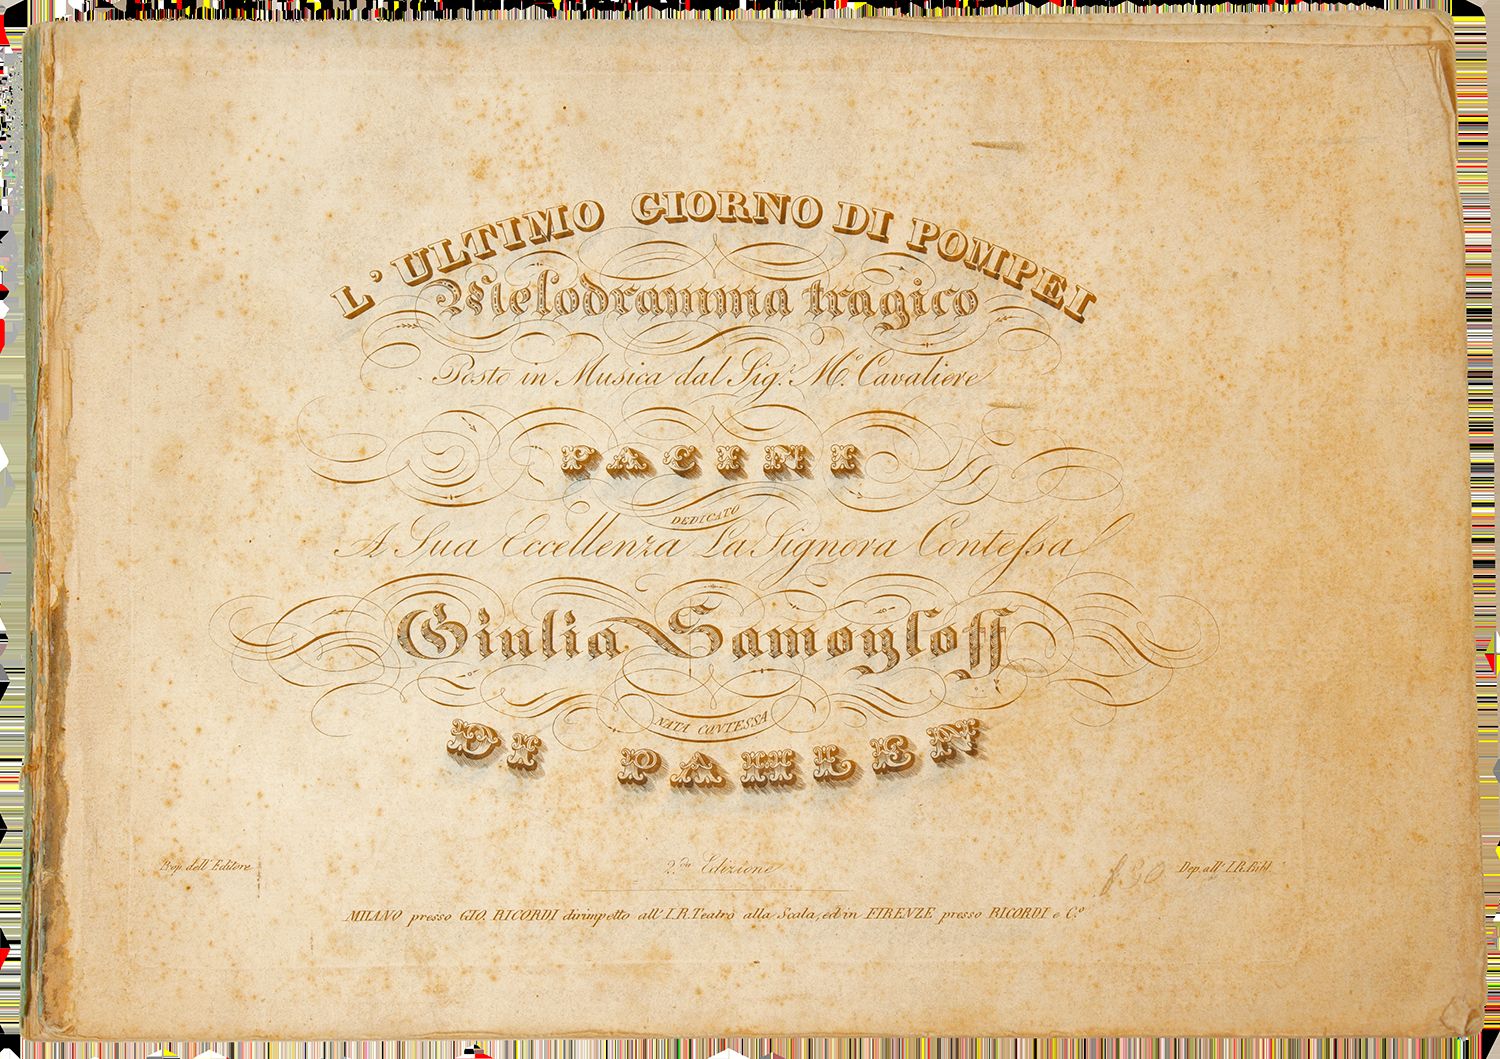 L'ULTIMO GIORNO DI POMPEI
Melodramma tragico
Posto in Musica dal Sig.r M.o Cavaliere
PACINI
DEDICATO
A Sua Eccellenza La Signora Contessa
Giulia Samoyloff
NATA CONTESSA
DI PAHLEN
Prop. dell' Editore
2.da Edizione
f 30
Dep. all' I.R. Bibl.
MILANO presso GIO. RICORDI dirimpetto all' I.R. Teatro alla Scala, ed in FIRENZE presso RICORDI e C.o